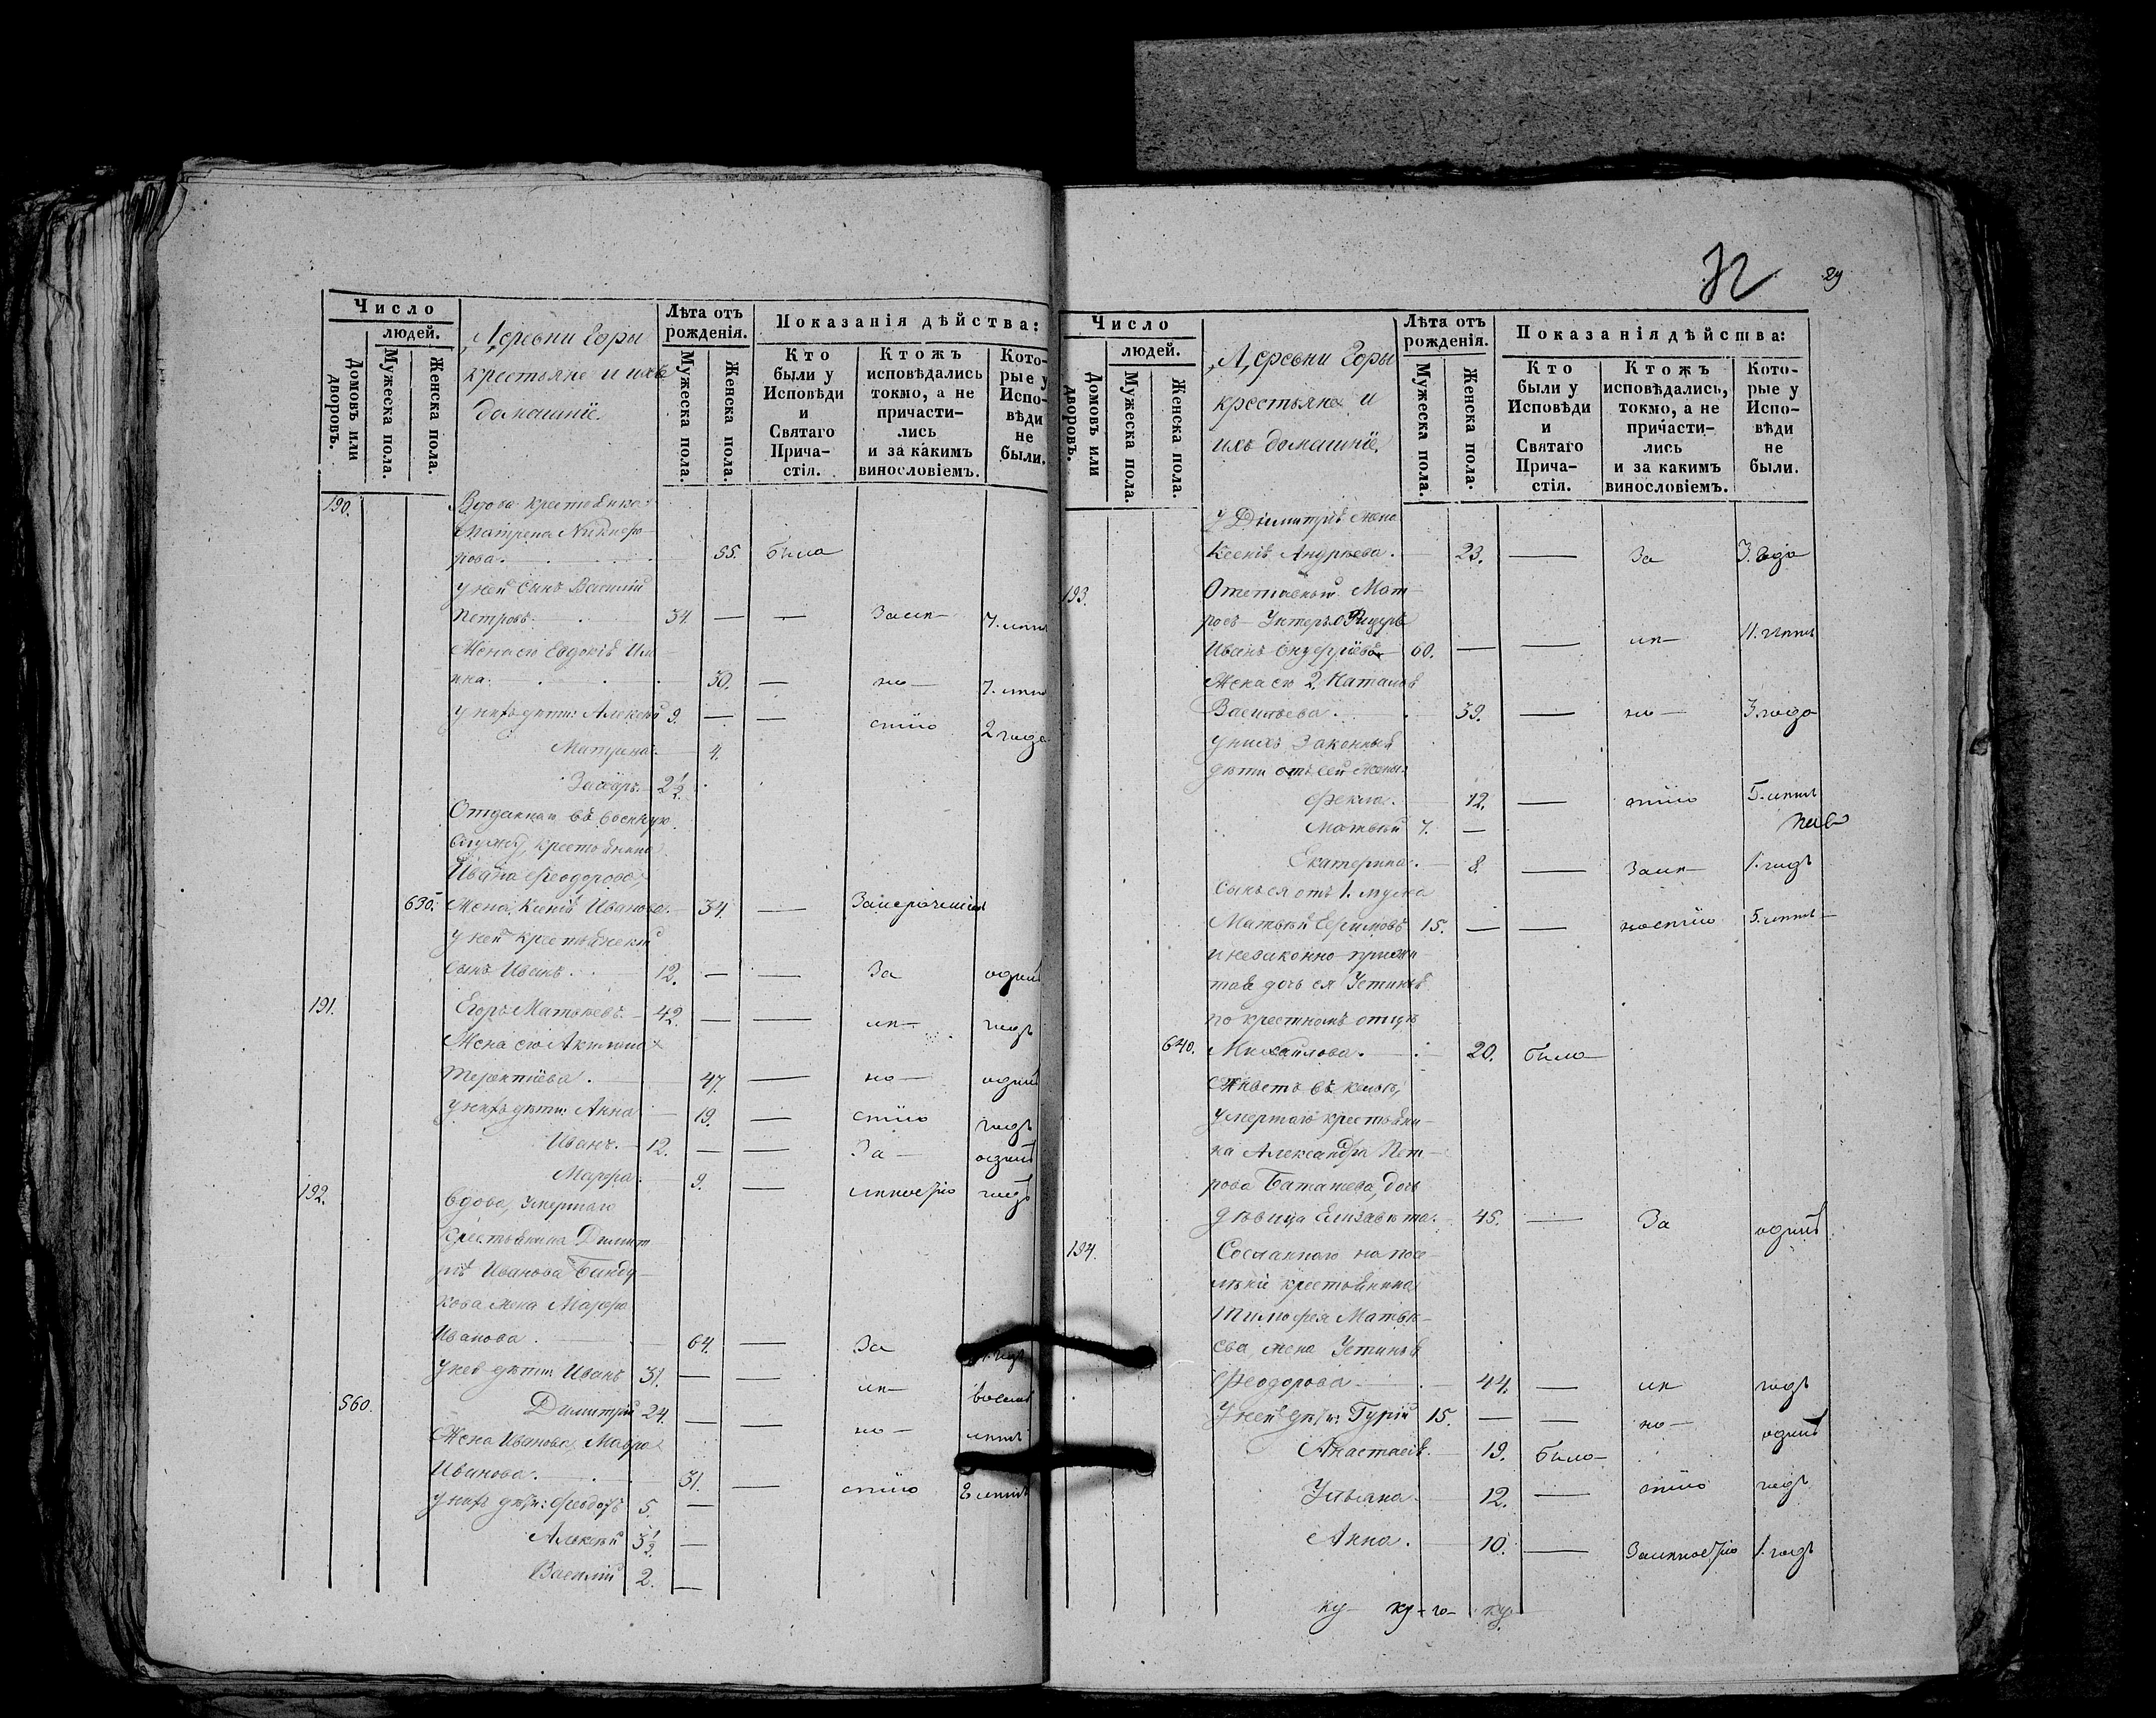 Число
людей.
Домовъ или дворовъ.
Мужеска пола.
Женска пола.
Деревни Горы
крестьяне и ихъ
домашніе
Лѣта отъ
рожденія.
Мужеска пола.
Женска пола.
Показанія дѣйства:
Кто
были у
Исповѣди
и
Святаго
Прича-
стія.
Ктожъ
исповѣдались
токмо, а не
причасти-
лись
и за какимъ
винословіемъ.
Кото-
рые у
Испо-
вѣди
не
были.
190. Вдова крестьянка
Матрена Никифо-
рова. 55. была
у ней сынъ Василій
Петровъ. 34. — — Заин- 7. лѣтъ
Жена его Евдокія Иль
ина. 30. — но- 7. лѣтъ
у нихъ дѣти: Алексѣй 9. — — стію 2 года
Матрена. 4.
Захаръ. 2 1/2.
Отданнаи въ военную
службу, крестьянина
Ивана Феодорова,
630. Жена, Ксенія Иванова. 34. —
у ней крестьянскій
сынъ Иванъ. 12. — — За одинъ
191. Егоръ Матвѣевъ. 42. — — ин- годъ
Жена его Акилина
Терентіева. 47. — но- одинъ
у нихъ дѣти: Анна 19. — стію годъ
Иванъ. 12. — — За- одинъ
Марфа. 9. — годъ
192. Вдова, Умершаго
крестьянина Димит
рія Иванова
жена Марфа
Иванова. 64. — За годъ
у нея дѣти: Иванъ 31. — — ин- восемь
560. Димитрій 24. — — но- лѣтъ
Жена Иванова, Мавра
Иванова. 31. — стію 8 лѣтъ
у нихъ дѣти: Феодоръ 5. —
Алексѣй 3 1/2. —
Василій 2. —
29
Число
людей.
Домовъ или дворовъ.
Мужеска пола.
Женска пола.
Деревни Горы
крестьяне и
ихъ домашніе,
Лѣта отъ
рожденія.
Мужеска пола.
Женска пола.
Показанія дѣйства:
Кто
были у
Исповѣди
и
Святаго
Прича-
стія.
Ктожъ
исповѣдались,
токмо, а не
причасти-
лись
и за какимъ
винословіемъ.
Кото-
рые у
Испо-
вѣди
не
были.
у Димитрія жена
Ксенія Андреева. 23. — За 3. года
193. Отставный Мат-
росъ-Унтеръ Офицеръ
Иванъ Онуфріевъ 60. — — ин- 11. лѣтъ
Жена его 2. Наталія
Васильева. 39. — но- 3. года
у нихъ Законныя
дѣти отъ сей жены:
Фекла. 12. — стію 5. лѣтъ
Матвѣй 7. —
Екатерина. 8. — Заин- 1. годъ
Сынъ ея отъ 1. мужа
Матвѣй Ефимовъ 15. — — ностію 5. лѣтъ
и незаконно прижи
тая дочь ея Устинья
по крестномъ отцѣ
640. Михайлова. 20. была
Живетъ въ кельѣ,
умершаго крестьяни-
на Александра Пет-
рова Баташева, дочь
дѣвица Елизавета. 45. — За одинъ
194. Сосланнаго на посе-
леніе крестьянина
Тимофея Матвѣ-
ева, жена Устинья
Феодорова 44. — ин годъ
У ней дѣти: Гурій 15. — — но- одинъ
Анастасія. 19. была-
Ульяна. 12. — стію годъ
Анна. 10. — 1. годъ